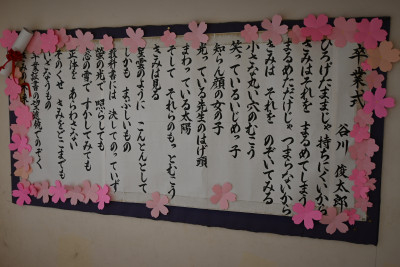 卒業式
谷川 俊太郎
ひろげたままじゃ持ちにくいから
きみはそれを まるめてしまう
まるめただけじゃ つまらないから
きみは それを のぞいてみる
小さな丸い穴のむこう
笑っているいじめっ子
知らん顔の女の子
光っている先生のはげ頭
まわっている太陽
そして それらのもっとむこう
きみは見る
星雲のように こんとんとして
しかもまぶしいもの
教科書には 決してのっていず
蛍の光で 照らしても
窓の雪で すかしてみても
正体を あらわさない
そのくせ きみをどこまでも
いざなうもの
卒業証書の望遠鏡でのぞく